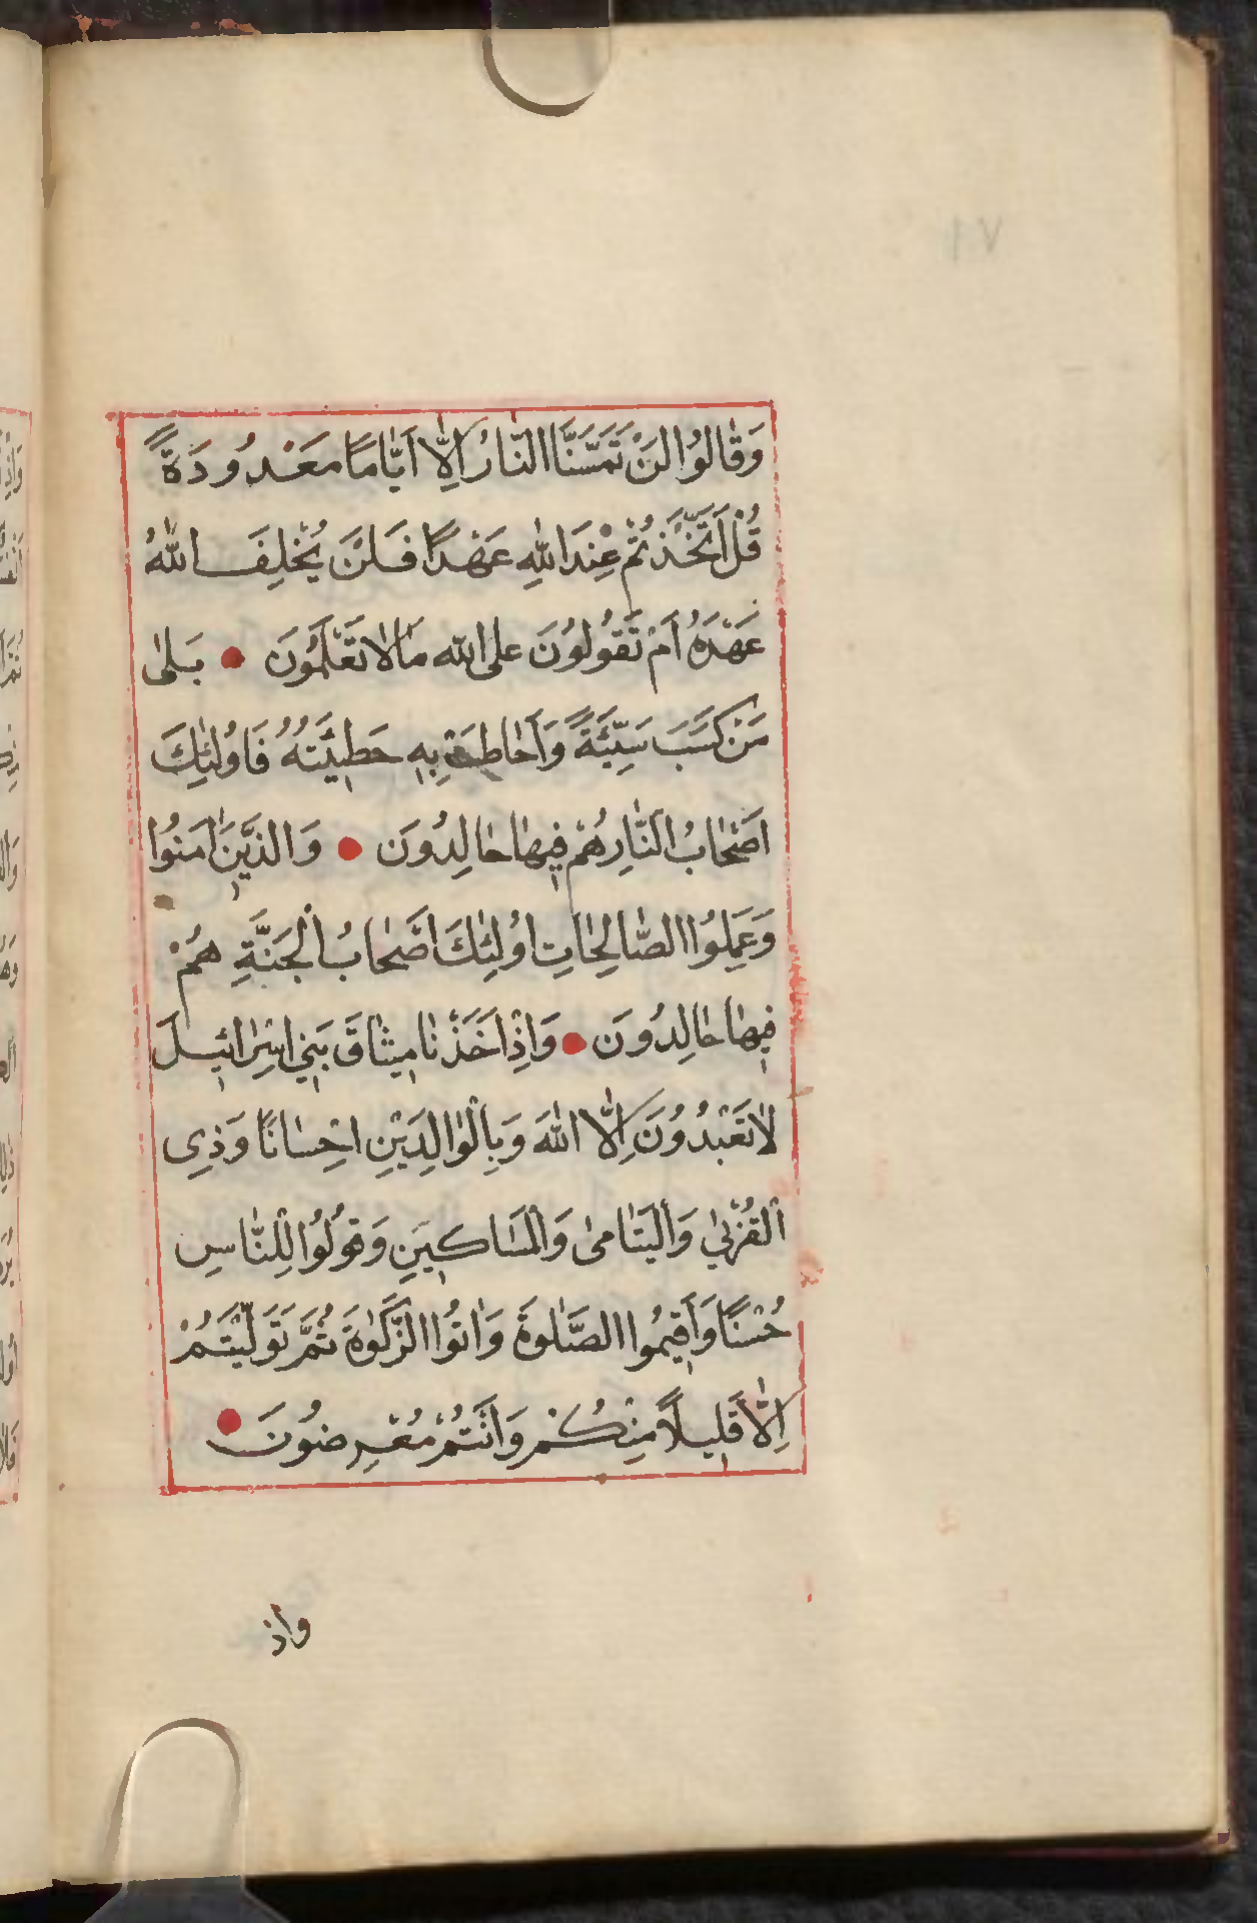 وَقَالُوا لَنْ تَمَسَّنَا النَّارُ اِلَّا اَيَّامًا مَعْدُودَةً
قُلْ اَتَّخَذْتُمْ عِنْدَ اللّٰهِ عَهْدًا فَلَنْ يُخْلِفَ اللّٰهُ
عَهْدَهُ اَمْ تَقُولُونَ عَلَى اللّٰه مَا لَا تَعْلَمُونَ ● بَلٰى
مَنْ كَسَبَ سَيِّئَةً وَاَحَاطَتْ بِه۪ خَطِيئَتُهُ فَاُولٰئِكَ
اَصْحَابُ النَّارِ هُمْ فِيهَا خَالِدُونَ ● وَالَّذِينَ اٰمَنُوا
وَعَمِلُوا الصَّالِحَاتِ اُولٰئِكَ اَصْحَابُ الْجَنَّةِ هُمْ
فِيهَا خَالِدُونَ ● وَاِذْ اَخَذْنَا مِيثَاقَ بَنِي اِسْرَائِيلَ
لَا تَعْبُدُونَ اِلَّا اللّٰهَ وَبِالْوَالِدَيْنِ اِحْسَانًا وَذِي
الْقُرْبٰى وَالْيَتَامٰى وَالْمَسَاكِينِ وَقُولُوا لِلنَّاسِ
حُسْنًا وَاَقِيمُوا الصَّلٰوةَ وَاٰتُوا الزَّكٰوةَ ثُمَّ تَوَلَّيْتُمْ
اِلَّا قَلِيلًا مِنْكُمْ وَاَنْتُمْ مُعْرِضُونَ ●
واذ